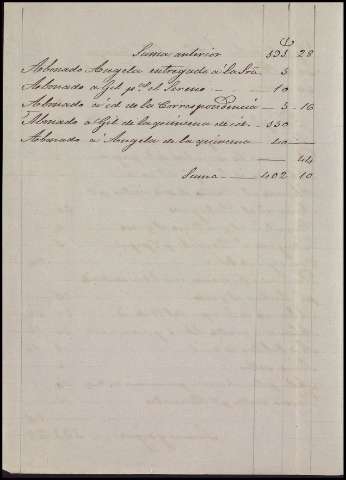 Suma anterior 535 28
Abonado Angela entregado á la Sra. 5
Abonado a Gil pa. el Sereno 10
Abonado á id de la Correspondencia 5 16
Abonado a Gil de la quincena de id. 550
Abonado á Angela de la quincena 40
44
Suma 402 10